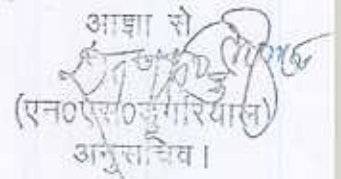 आज्ञा से
(एन०एस०डुंगरियाल)
अनुसचिव।